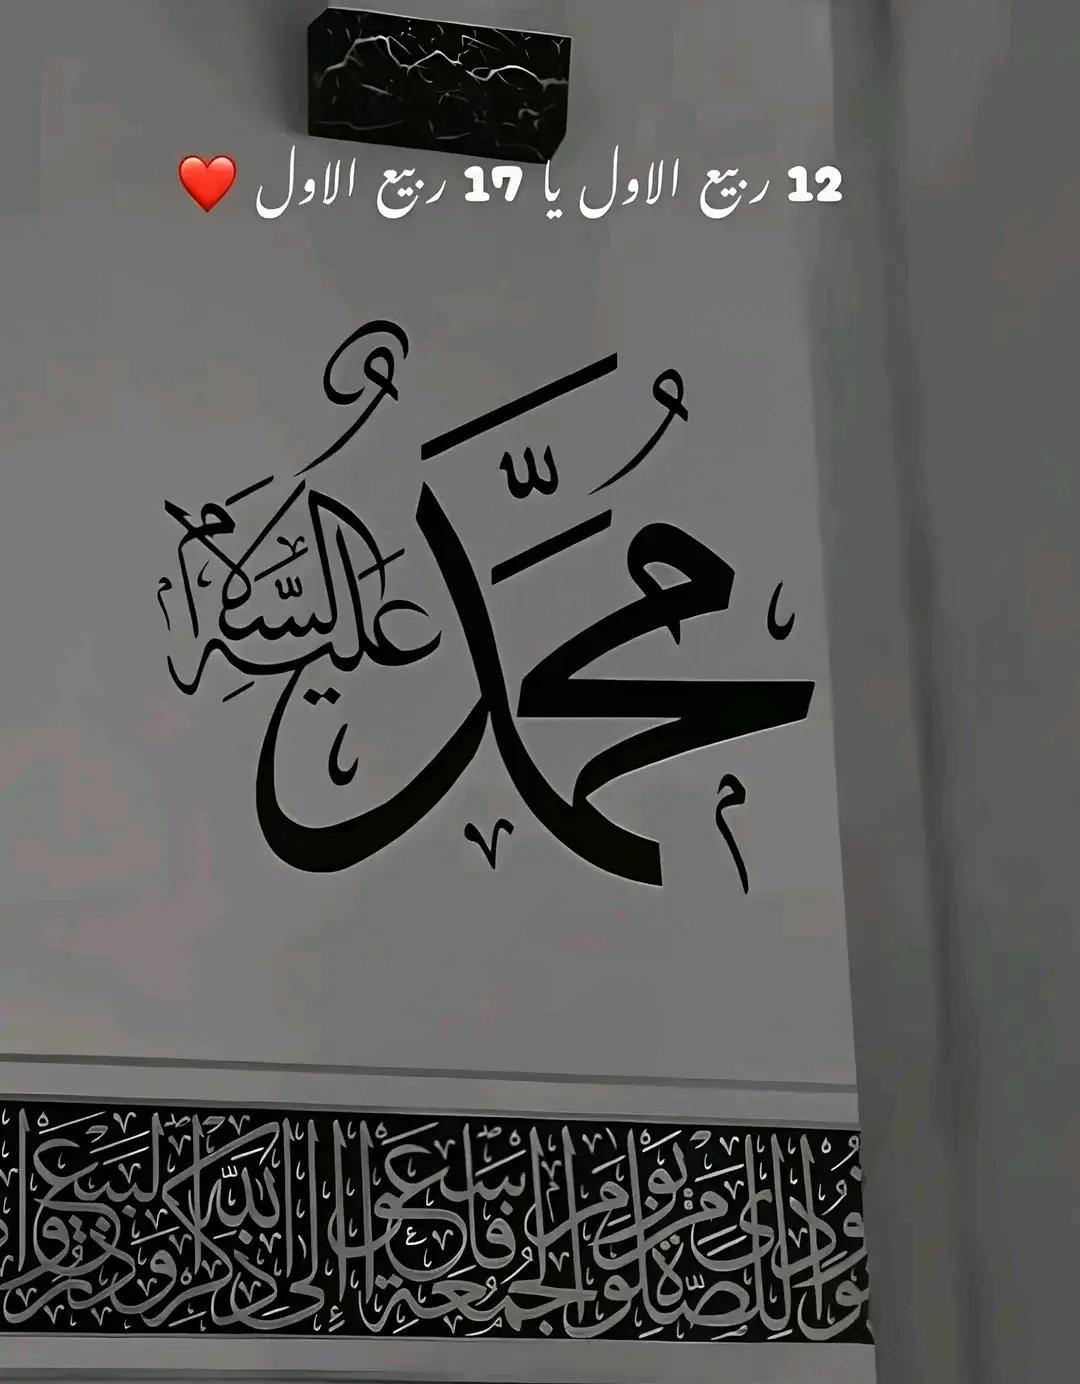 12 ربیع الاول یا 17 ربیع الاول ❤️
مُحَمَّد
عَلَيْهِ السَّلَام
نُودِيَ لِلصَّلَاةِ مِن يَوْمِ الْجُمُعَةِ فَاسْعَوْا إِلَىٰ ذِكْرِ اللَّهِ وَذَرُوا الْبَيْعَ